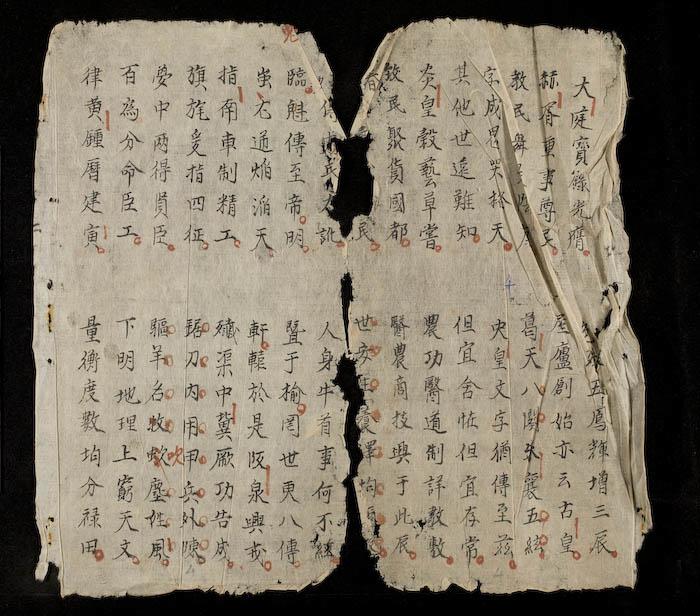 大庭寶籙光膺 錄五鳳輝增三辰
赫胥重事尊民 居廬創始亦云古皇
教民舞是陰康 葛天八闋朱襄五絃
字成鬼哭於天 史皇文字猶傳至茲
其他世遠難知 但宜舍恠但宜存常
炎皇穀藝草嘗 農功醫道制詳教敷
教民聚貨國都 醫農商技興于此辰
民 世安澤均
民訛 人身牛首事何不經
臨魁傳至帝明 暨于榆罔世更八傳
蚩尤道焰滔天 軒轅於是阪泉興戎
指南車制精工 殲渠中冀厥功告成
旗旄爰指四征 鋸刀內用甲兵外陳
夢中兩得賢臣 驅羊名牧吹塵姓風
百為分命臣工 下明地理上窮天文
律黃鍾曆建寅 量衡度數均分祿田